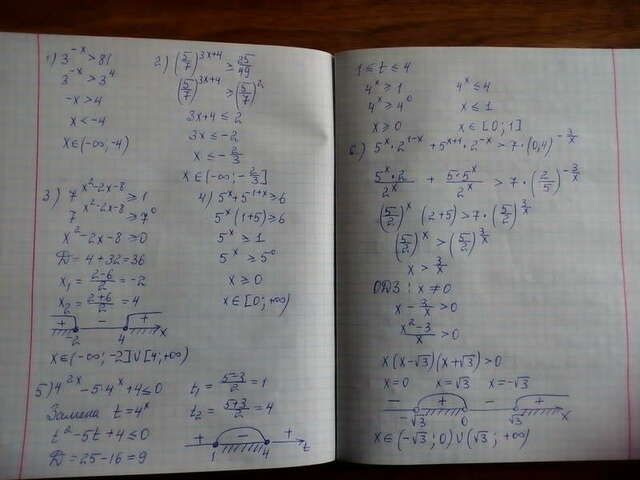 1) 3^{-x} > 81
3^{-x} > 3^4
-x > 4
x < -4
x ∈ (-∞; -4)
2) (5/7)^{3x+4} ≥ 25/49
(5/7)^{3x+4} ≥ (5/7)^2
3x+4 ≤ 2
3x ≤ -2
x ≤ -2/3
x ∈ (-∞; -2/3]
3) 7^{x^2-2x-8} ≥ 1
7^{x^2-2x-8} ≥ 7^0
x^2-2x-8 ≥ 0
D = 4+32=36
x_1 = (2-6)/2 = -2
x_2 = (2+6)/2 = 4
+ - +
-2 4 x
x ∈ (-∞; -2] ∪ [4; +∞)
4) 5^x + 5^{1+x} ≥ 6
5^x (1+5) ≥ 6
5^x ≥ 1
5^x ≥ 5^0
x ≥ 0
x ∈ [0; +∞)
5) 4^{2x} - 5·4^x + 4 ≤ 0
Замена t = 4^x
t^2 - 5t + 4 ≤ 0
D = 25-16 = 9
t_1 = (5-3)/2 = 1
t_2 = (5+3)/2 = 4
+ - +
1 4 t
1 ≤ t ≤ 4
4^x ≥ 1
4^x ≥ 4^0
x ≥ 0
4^x ≤ 4
x ≤ 1
x ∈ [0; 1]
6) 5^x · 2^{1-x} + 5^{x+1} · 2^{-x} > 7 · (0,4)^{-3/x}
(5^x · 2)/2^x + (5·5^x)/2^x > 7 · (2/5)^{-3/x}
(5/2)^x (2+5) > 7 · (5/2)^{3/x}
(5/2)^x > (5/2)^{3/x}
x > 3/x
ОДЗ: x ≠ 0
x - 3/x > 0
(x^2-3)/x > 0
x(x-√3)(x+√3) > 0
x=0 x=√3 x=-√3
- + - +
-√3 0 √3 x
x ∈ (-√3; 0) ∪ (√3; +∞)